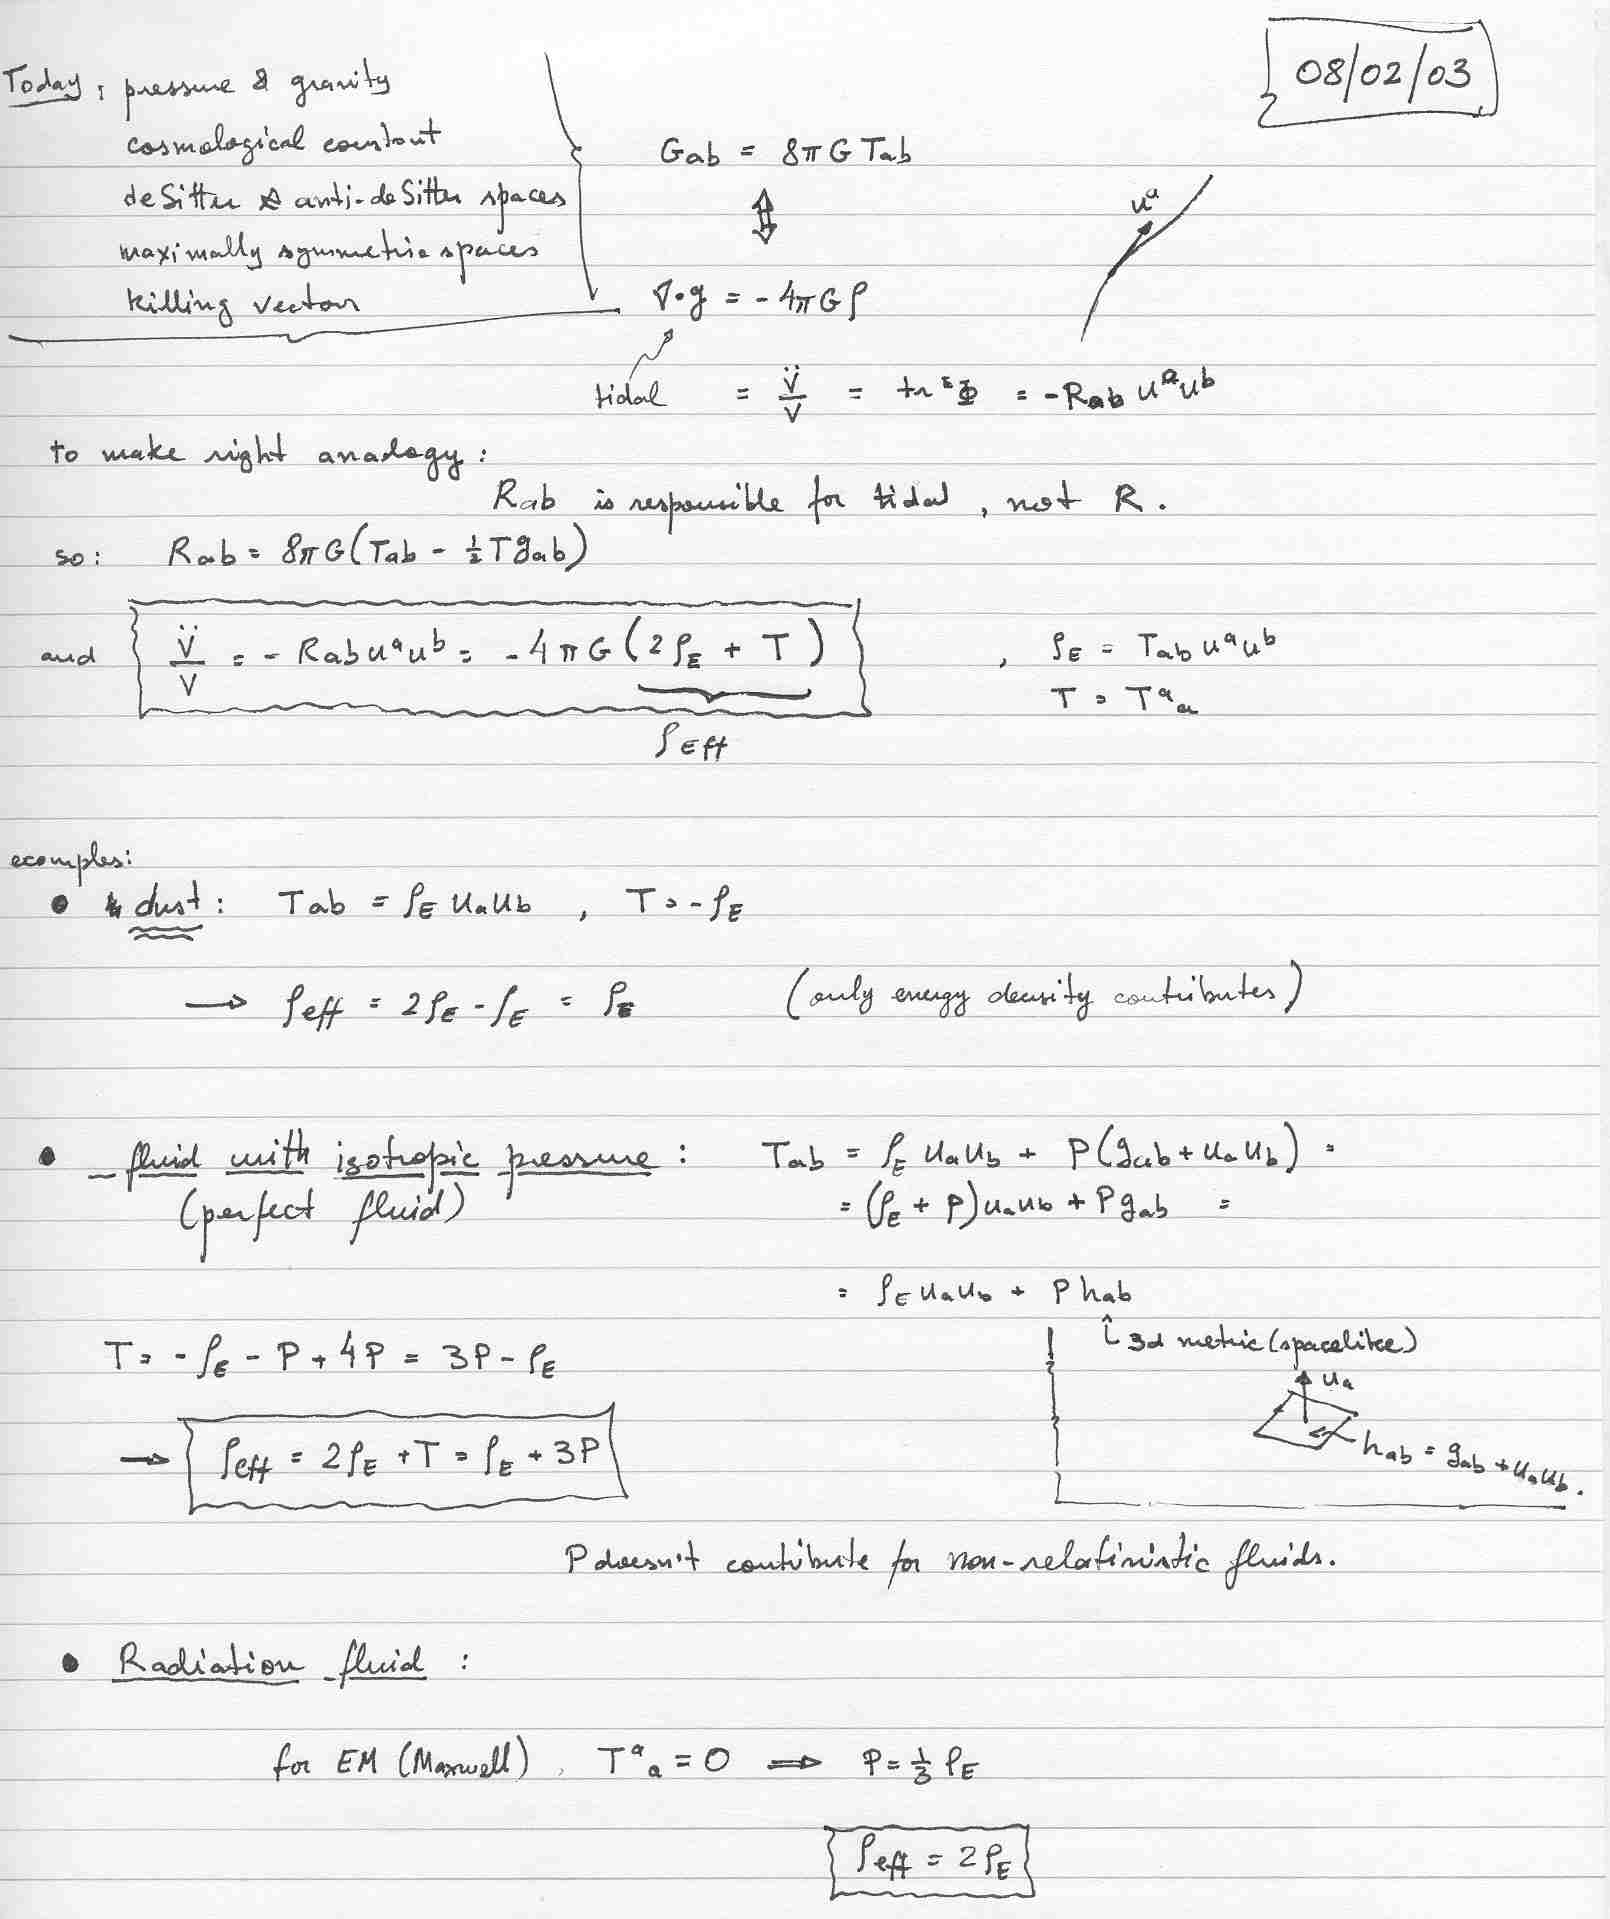 08/02/03
Today: pressure & gravity
cosmological constant
deSitter & anti-deSitter spaces
maximally symmetric spaces
killing vectors
Gab = 8πG Tab
⇕
∇·g = -4πGρ
uᵃ
tidal = V̈/V = tr Φ = -Rab uᵃuᵇ
to make right analogy:
Rab is responsible for tidal, not R.
so: Rab = 8πG(Tab - ½Tgab)
and V̈/V = -Rab uᵃuᵇ = -4πG(2ρE + T), ρE = Tab uᵃuᵇ
T = Tᵃₐ
ρEff
examples:
• dust: Tab = ρE uaub, T = -ρE
→ ρeff = 2ρE - ρE = ρE (only energy density contributes)
• fluid with isotropic pressure: Tab = ρE uaub + P(gab + uaub) =
(perfect fluid) = (ρE + P)uaub + Pgab =
= ρE uaub + P hab
3d metric (spacelike)
T = -ρE - P + 4P = 3P - ρE
ua
→ ρeff = 2ρE + T = ρE + 3P
hab = gab + uaub.
P doesn't contribute for non-relativistic fluids.
• Radiation fluid:
for EM (Maxwell), Tᵃₐ = 0 ⟹ P = ⅓ρE
ρeff = 2ρE